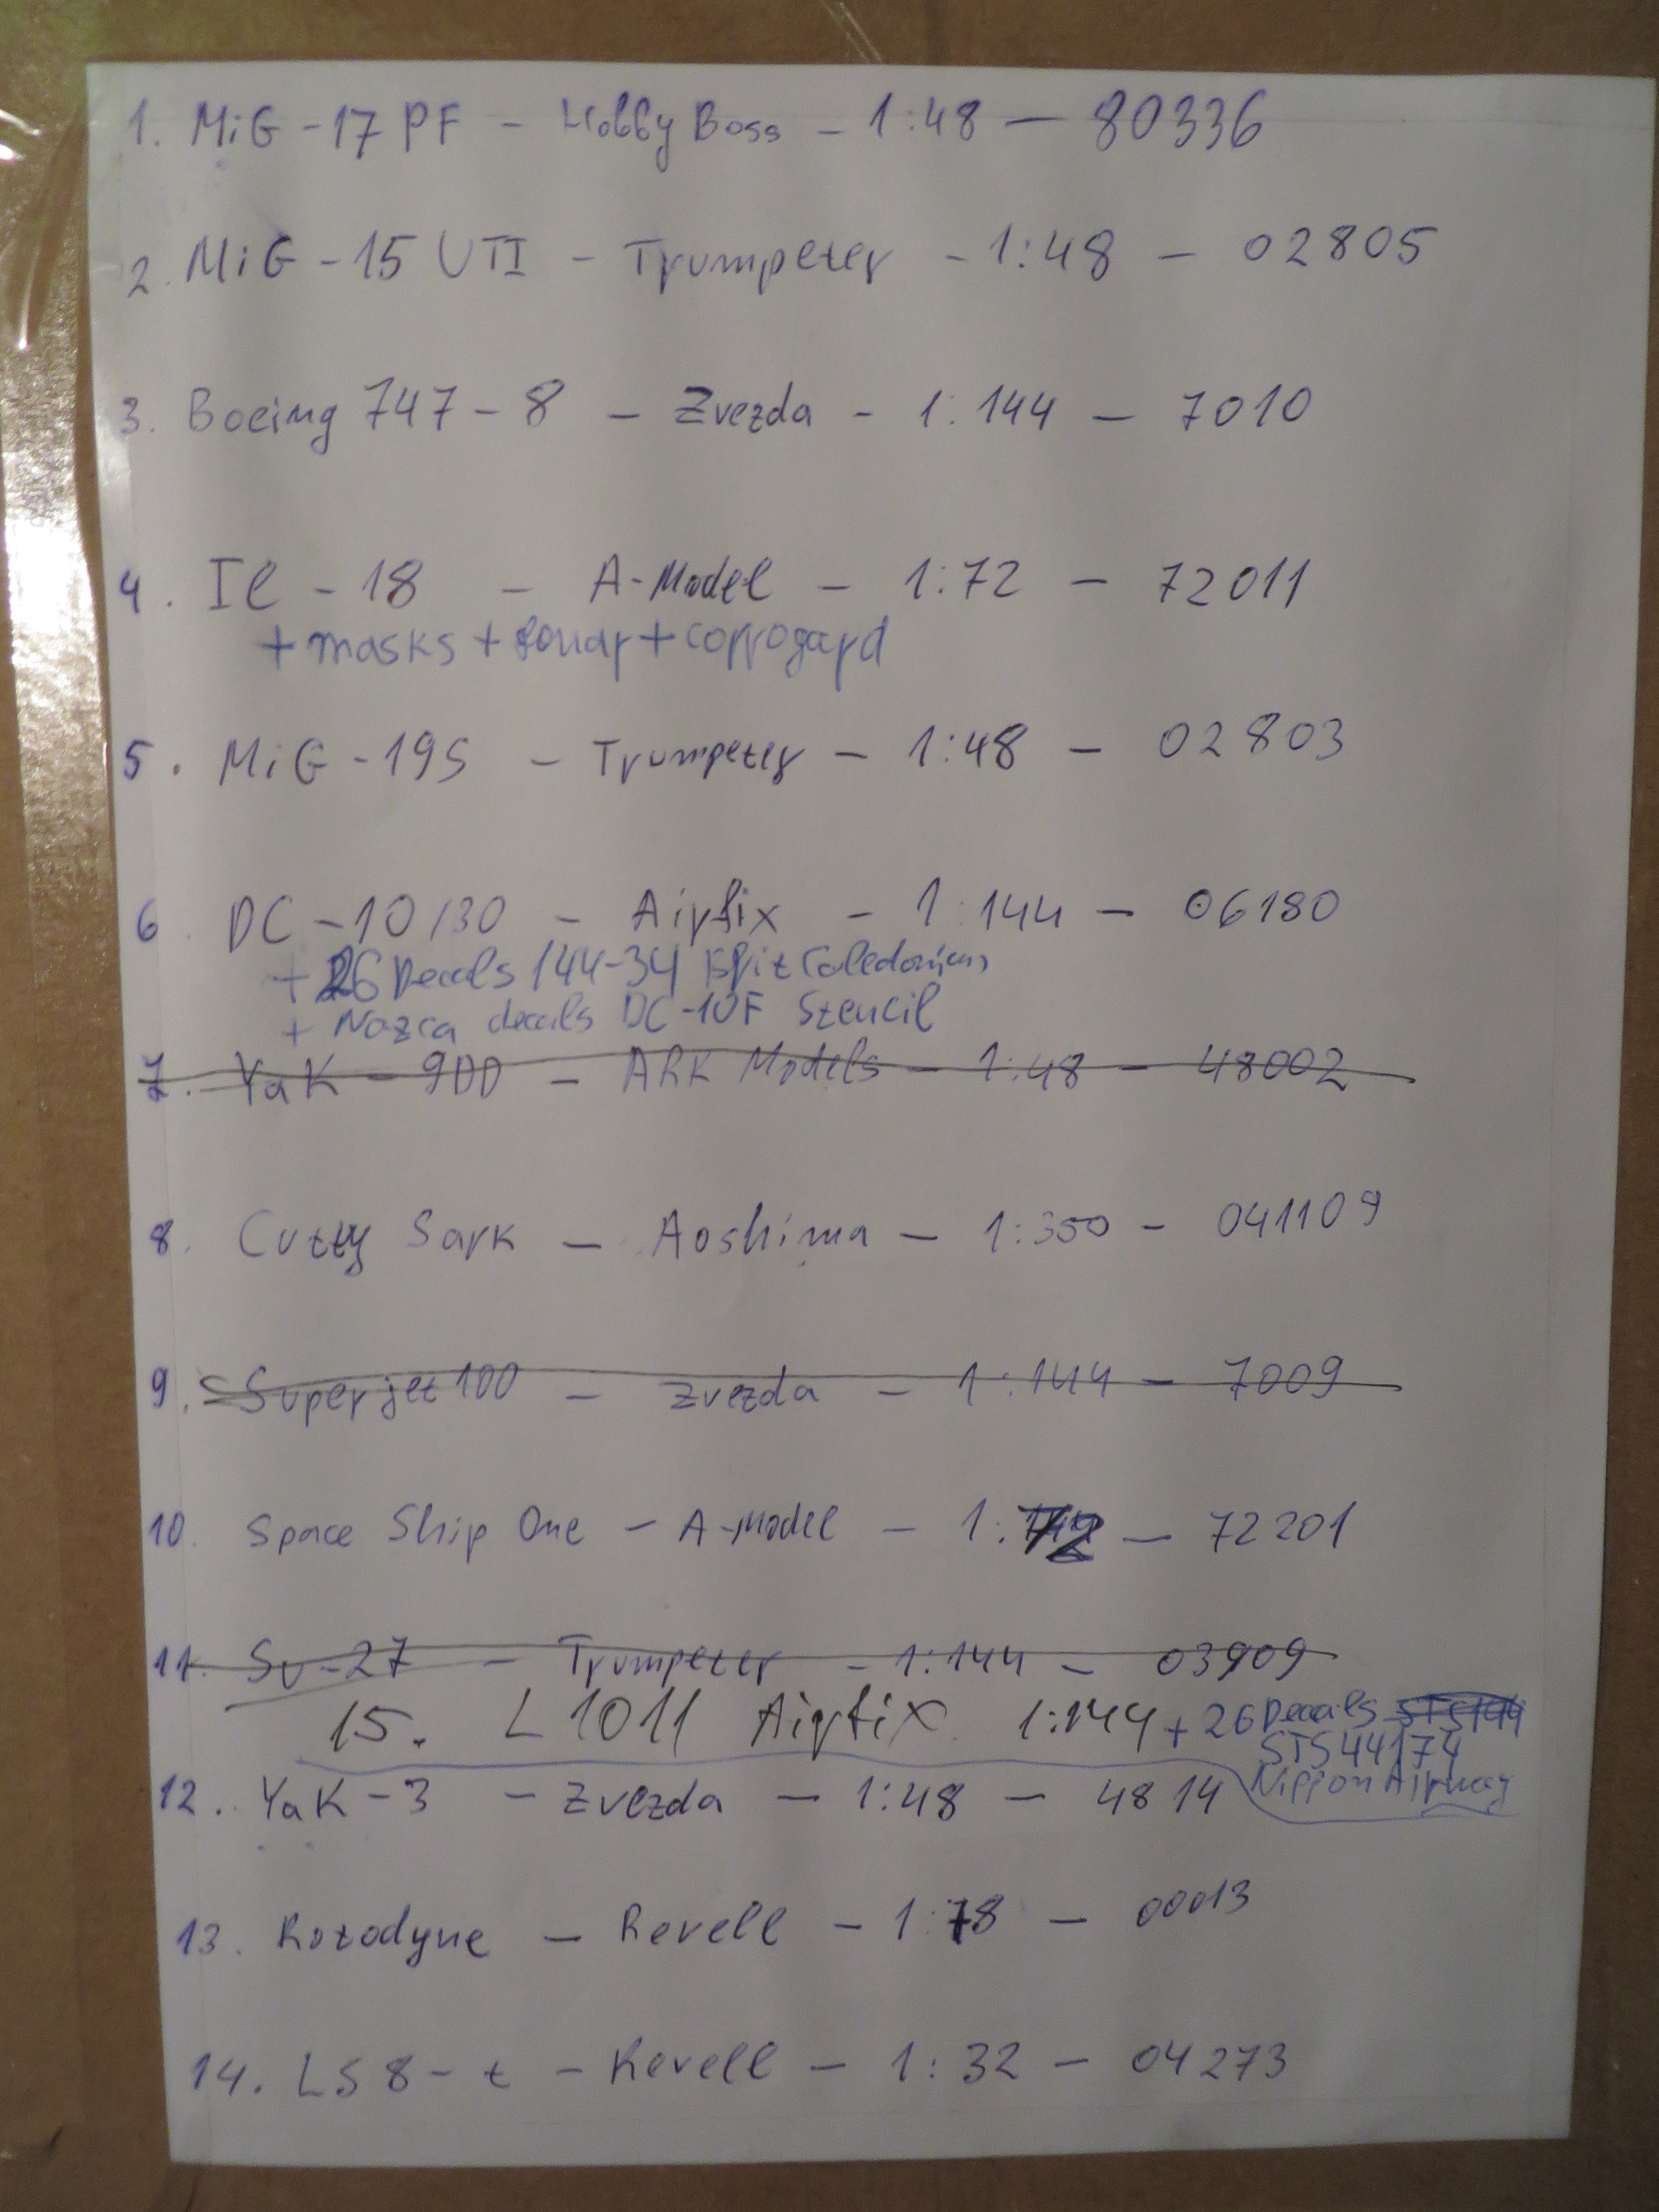 1. MiG-17 PF - Hobby Boss - 1:48 - 80336
2. MiG-15 UTI - Trumpeter - 1:48 - 02805
3. Boeing 747-8 - Zvezda - 1:144 - 7010
4. Il-18 - A-Model - 1:72 - 72011
+ masks +
5. MiG-19S - Trumpeter - 1:48 - 02803
6 DC-10/30 - Airfix - 1:144 - 06180
+ 26 Decals 144-34 Caledonian
+ Nazca decals DC-10F Stencil
7. YaK-9DD - ARK Models - 1:48 - 48002
8. Cutty Sark - Aoshima - 1:350 - 041109
9. Superjet 100 - Zvezda - 1:144 - 7009
10. Space Ship One - A-Model - 1:72 - 72201
11. Su-27 - Trumpeter - 1:144 - 03909
15. L1011 Airfix 1:144 + 26 Decals STS144
STS44174
Nippon Airway
12. YaK-3 - Zvezda - 1:48 - 4814
13. Rotodyne - Revell - 1:78 - 00013
14. LS 8-t - Revell - 1:32 - 04273